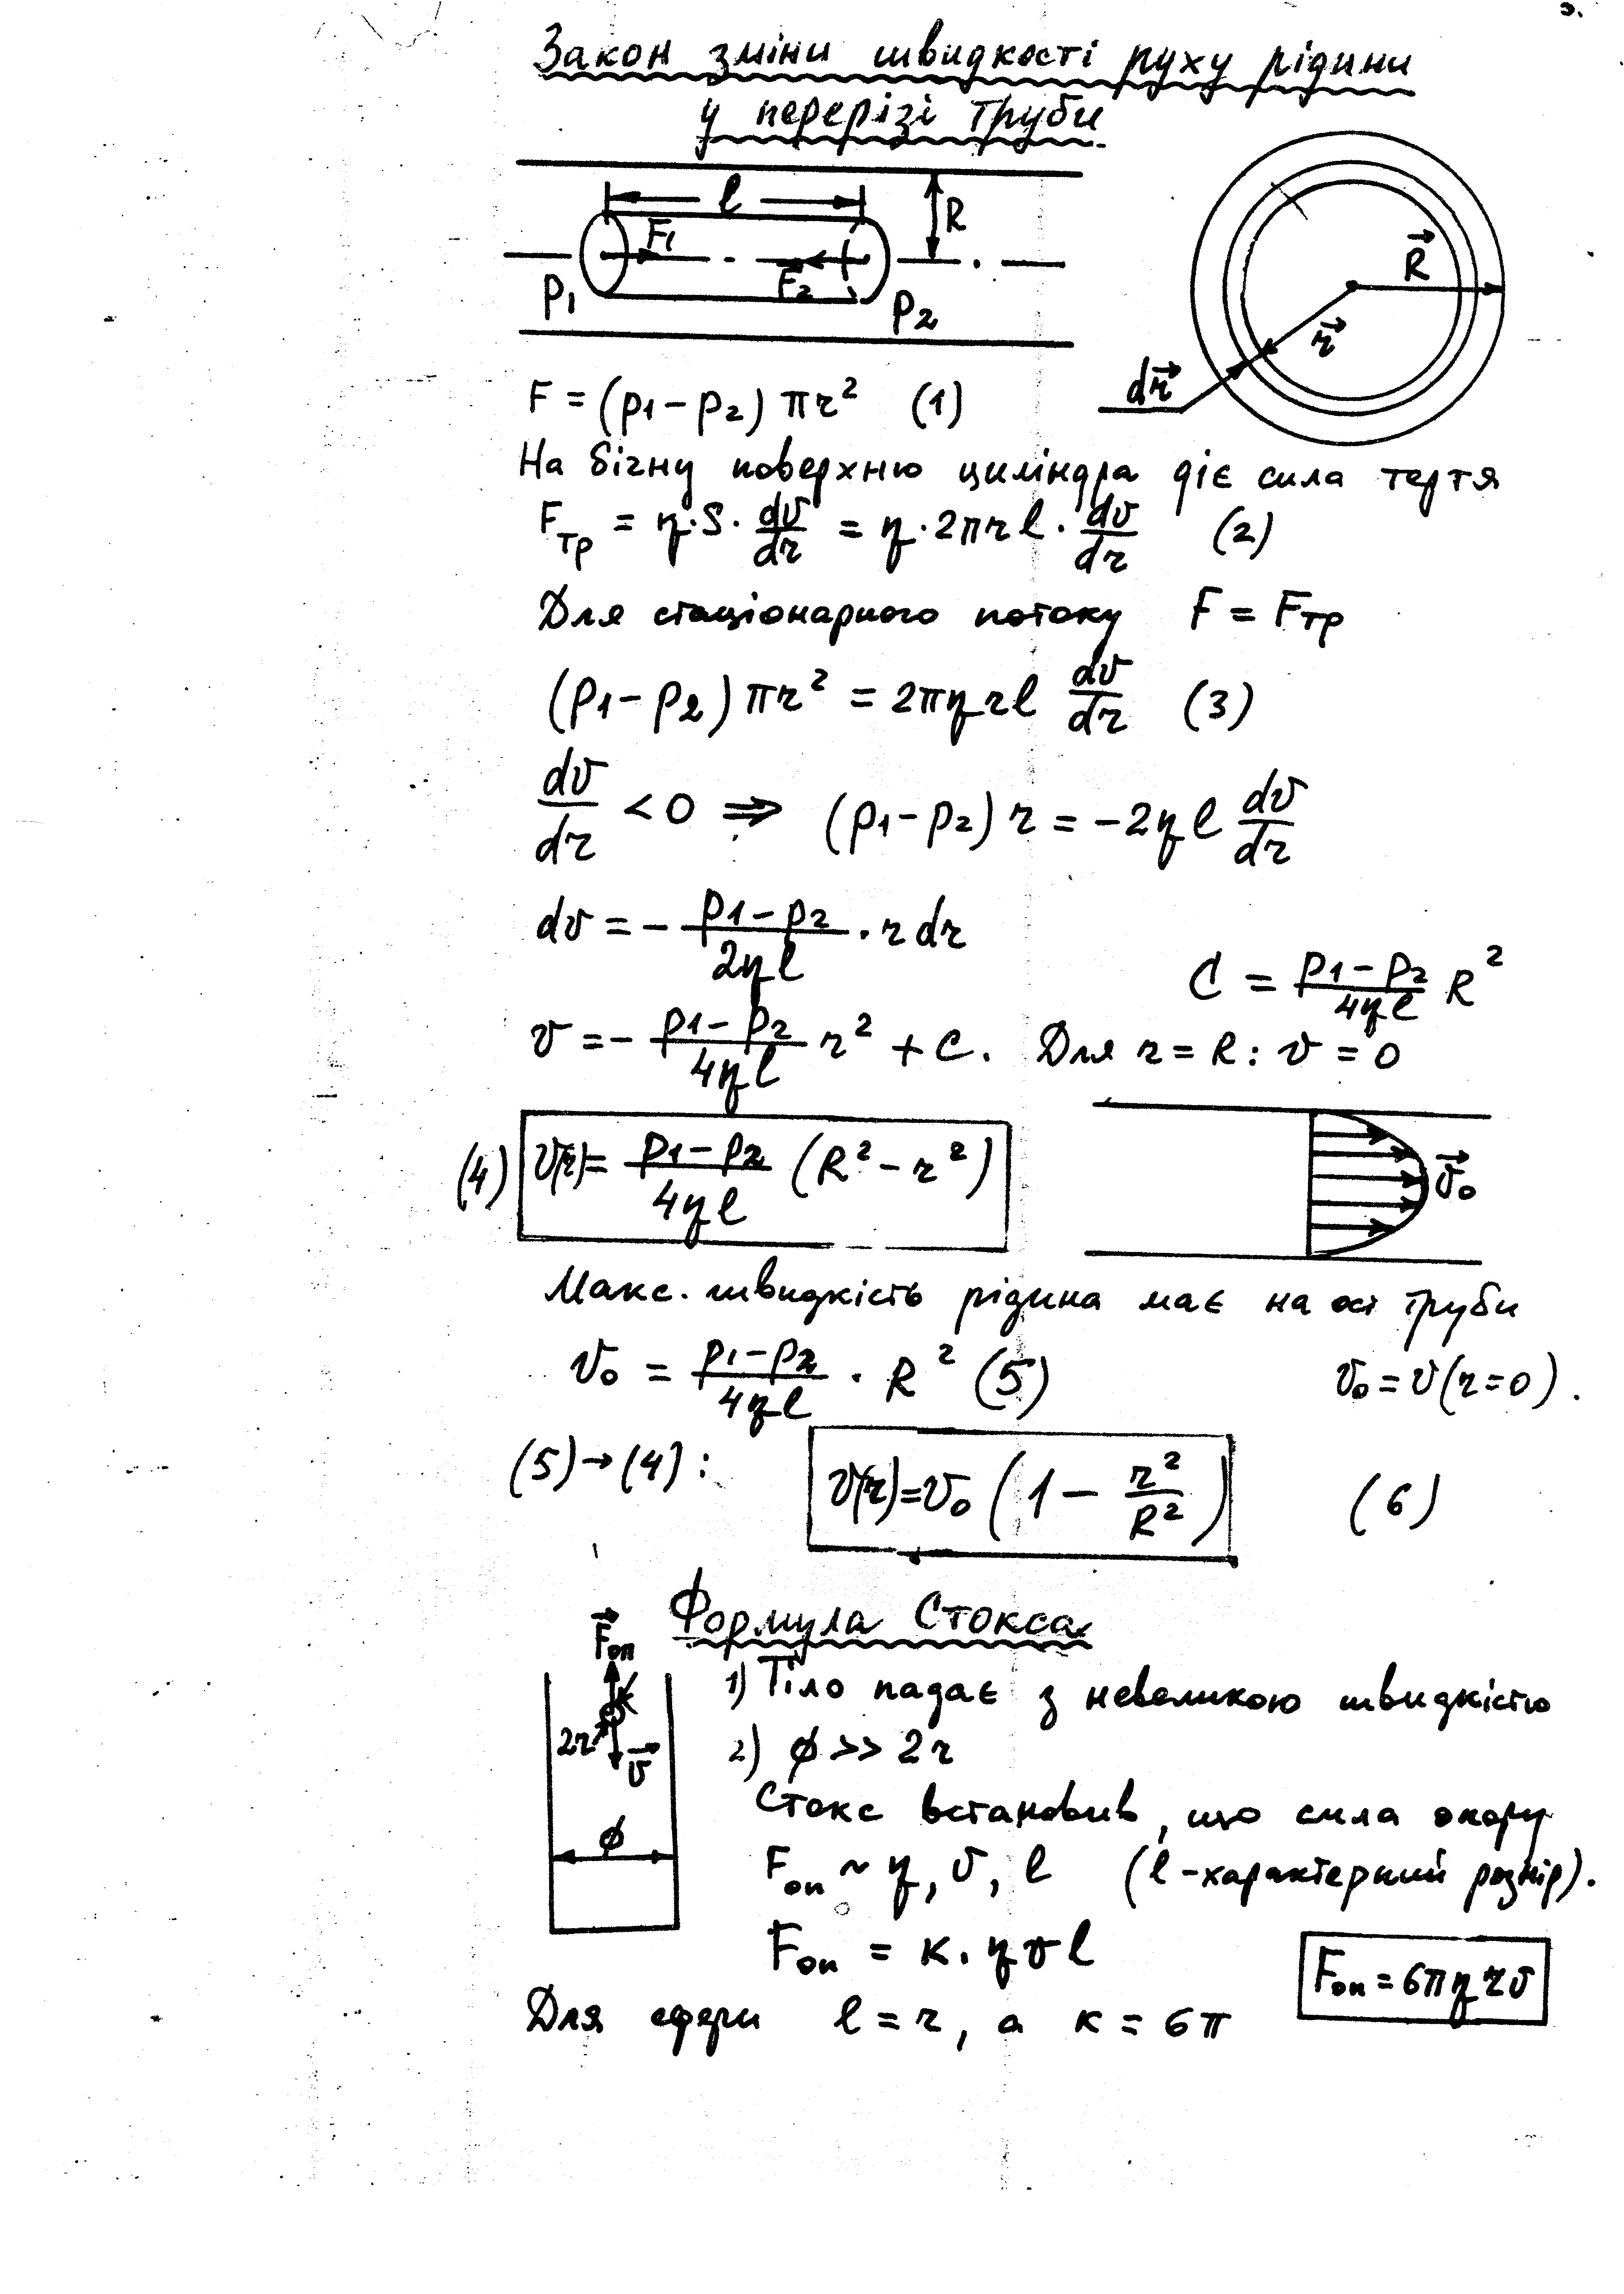 Закон зміни швидкості руху рідини
у перерізі труби
l
R
F₁
F₂
p₁
p₂
R⃗
r⃗
dr⃗
F = (p₁ − p₂) πr² (1)
На бічну поверхню циліндра діє сила тертя
Fтр = η · S · dv/dr = η · 2πrl · dv/dr (2)
Для стаціонарного потоку F = Fтр
(p₁ − p₂) πr² = 2πηrl dv/dr (3)
dv/dr < 0 ⇒ (p₁ − p₂) r = −2ηl dv/dr
dv = − (p₁ − p₂)/(2ηl) · r dr
C = (p₁ − p₂)/(4ηl) R²
v = − (p₁ − p₂)/(4ηl) r² + C. Для r = R : v = 0
(4) v(r) = (p₁ − p₂)/(4ηl) (R² − r²)
v⃗₀
Макс. швидкість рідина має на осі труби
v₀ = (p₁ − p₂)/(4ηl) · R² (5) v₀ = v(r=0).
(5) → (4) : v(r) = v₀ (1 − r²/R²) (6)
Формула Стокса
F⃗оп
2r
v⃗
ϕ
1) Тіло падає з невеликою швидкістю
2) ϕ >> 2r
Стокс встановив, що сила опору
Fоп ~ η, v, l (l - характерний розмір).
Fоп = к · ηvl
Fоп = 6πηrv
Для сфери l = r, а к = 6π